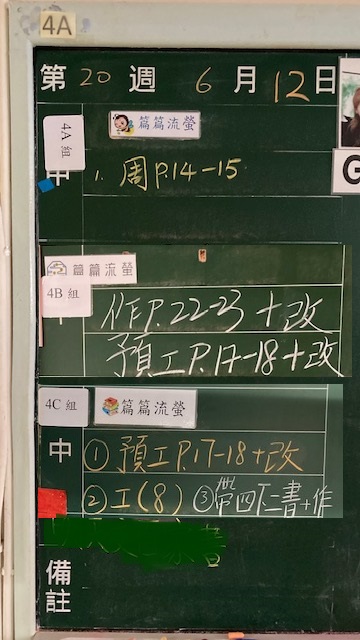 4A
第 20 週 6 月 12 日
4A組
篇篇流螢
中
1. 周P.14-15
G
篇篇流螢
4B 組
作P.22-23+改
預工P.17-18+改
4C 組
篇篇流螢
中
①預工P.17-18+改
②工(8) ③帶四下二書+作
備註